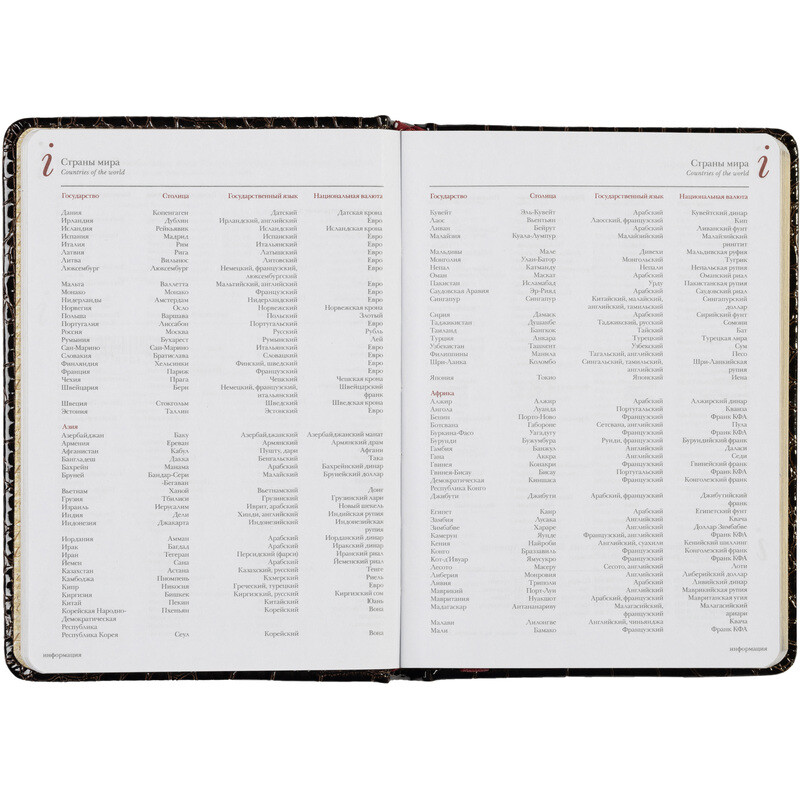 i
Страны мира
Countries of the world
Государство Столица Государственный язык Национальная валюта
Дания Копенгаген Датский Датская крона
Ирландия Дублин Ирландский, английский Евро
Исландия Рейкьявик Исландский Исландская крона
Испания Мадрид Испанский Евро
Италия Рим Итальянский Евро
Латвия Рига Латышский Евро
Литва Вильнюс Литовский Евро
Люксембург Люксембург Немецкий, французский, Евро
люксембургский
Мальта Валлетта Мальтийский, английский Евро
Монако Монако Французский Евро
Нидерланды Амстердам Нидерландский Евро
Норвегия Осло Норвежский Норвежская крона
Польша Варшава Польский Злотый
Португалия Лиссабон Португальский Евро
Россия Москва Русский Рубль
Румыния Бухарест Румынский Лей
Сан-Марино Сан-Марино Итальянский Евро
Словакия Братислава Словацкий Евро
Финляндия Хельсинки Финский, шведский Евро
Франция Париж Французский Евро
Чехия Прага Чешский Чешская крона
Швейцария Берн Немецкий, французский, Швейцарский
итальянский франк
Швеция Стокгольм Шведский Шведская крона
Эстония Таллин Эстонский Евро
Азия
Азербайджан Баку Азербайджанский Азербайджанский манат
Армения Ереван Армянский Армянский драм
Афганистан Кабул Пушту, дари Афгани
Бангладеш Дакка Бенгальский Така
Бахрейн Манама Арабский Бахрейнский динар
Бруней Бандар-Сери Малайский Брунейский доллар
-Бегаван
Вьетнам Ханой Вьетнамский Донг
Грузия Тбилиси Грузинский Грузинский лари
Израиль Иерусалим Иврит, арабский Новый шекель
Индия Дели Хинди, английский Индийская рупия
Индонезия Джакарта Индонезийский Индонезийская
рупия
Иордания Амман Арабский Иорданский динар
Ирак Багдад Арабский Иракский динар
Иран Тегеран Персидский (фарси) Иранский риал
Йемен Сана Арабский Йеменский риал
Казахстан Астана Казахский, русский Тенге
Камбоджа Пномпень Кхмерский Риель
Кипр Никосия Греческий, турецкий Евро
Киргизия Бишкек Киргизский, русский Киргизский сом
Китай Пекин Китайский Юань
Корейская Народно- Пхеньян Корейский Вона
Демократическая
Республика
Республика Корея Сеул Корейский Вона
информация
Страны мира
Countries of the world
i
Государство Столица Государственный язык Национальная валюта
Кувейт Эль-Кувейт Арабский Кувейтский динар
Лаос Вьентьян Лаосский, французский Кип
Ливан Бейрут Арабский Ливанский фунт
Малайзия Куала-Лумпур Малайзийский Малайзийский
ринггит
Мальдивы Мале Дивехи Мальдивская руфия
Монголия Улан-Батор Монгольский Тугрик
Непал Катманду Непали Непальская рупия
Оман Маскат Арабский Оманский риал
Пакистан Исламабад Урду Пакистанская рупия
Саудовская Аравия Эр-Рияд Арабский Саудовский риал
Сингапур Сингапур Китайский, малайский, Сингапурский
английский, тамильский доллар
Сирия Дамаск Арабский Сирийский фунт
Таджикистан Душанбе Таджикский, русский Сомони
Таиланд Бангкок Тайский Бат
Турция Анкара Турецкий Турецкая лира
Узбекистан Ташкент Узбекский Сум
Филиппины Манила Тагальский, английский Песо
Шри-Ланка Коломбо Сингальский, тамильский, Шри-Ланкийская
английский рупия
Япония Токио Японский Иена
Африка
Алжир Алжир Арабский Алжирский динар
Ангола Луанда Португальский Кванза
Бенин Порто-Ново Французский Франк КФА
Ботсвана Габороне Сетсвана, английский Пула
Буркина-Фасо Уагадугу Французский Франк КФА
Бурунди Бужумбура Рунди, французский Бурундийский франк
Гамбия Банжул Английский Даласи
Гана Аккра Английский Седи
Гвинея Конакри Французский Гвинейский франк
Гвинея-Бисау Бисау Португальский Франк КФА
Демократическая Киншаса Французский Конголезский франк
Республика Конго
Джибути Джибути Арабский, французский Джибутийский
франк
Египет Каир Арабский Египетский фунт
Замбия Лусака Английский Квача
Зимбабве Хараре Английский Доллар Зимбабве
Камерун Яунде Французский, английский Франк КФА
Кения Найроби Английский, суахили Кенийский шиллинг
Конго Браззавиль Французский Конголезский франк
Кот-д'Ивуар Ямусукро Французский Франк КФА
Лесото Масеру Сесото, английский Лоти
Либерия Монровия Английский Либерийский доллар
Ливия Триполи Арабский Ливийский динар
Маврикий Порт-Луи Английский Маврикийская рупия
Мавритания Нуакшот Арабский, французский Мавританская угия
Мадагаскар Антананариву Малагасийский, Малагасийский
французский ариари
Малави Лилонгве Английский, чиньянджа Квача
Мали Бамако Французский Франк КФА
информация